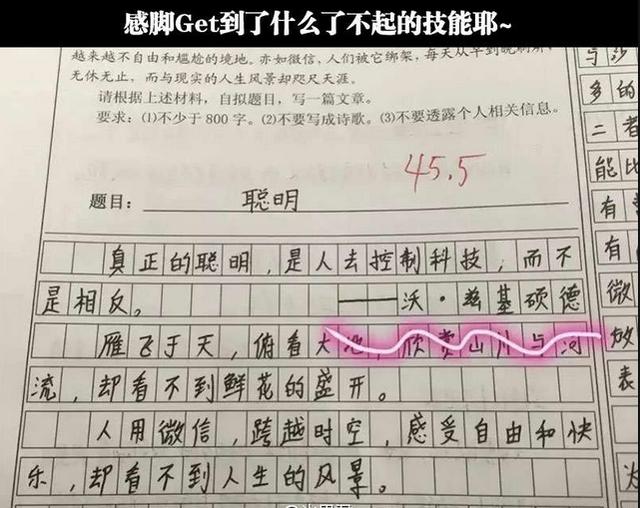 感脚Get到了什么了不起的技能耶~
越来越不自由和尴尬的境地。亦如微信,人们被它绑架,每天从早到晚刷屏,
无休无止,而与现实的人生风景却咫尺天涯。
请根据上述材料,自拟题目,写一篇文章。
要求:(1)不少于800字。(2)不要写成诗歌。(3)不要透露个人相关信息。
45.5
题目: 聪明
真正的聪明,是人去控制科技,而不
是相反。——沃·兹基硕德
雁飞于天,俯看大地,欣赏山川与河
流,却看不到鲜花的盛开。
人用微信,跨越时空,感受自由和快
乐,却看不到人生的风景。
与沙
多的
二者
能比
有
有
微
放
表